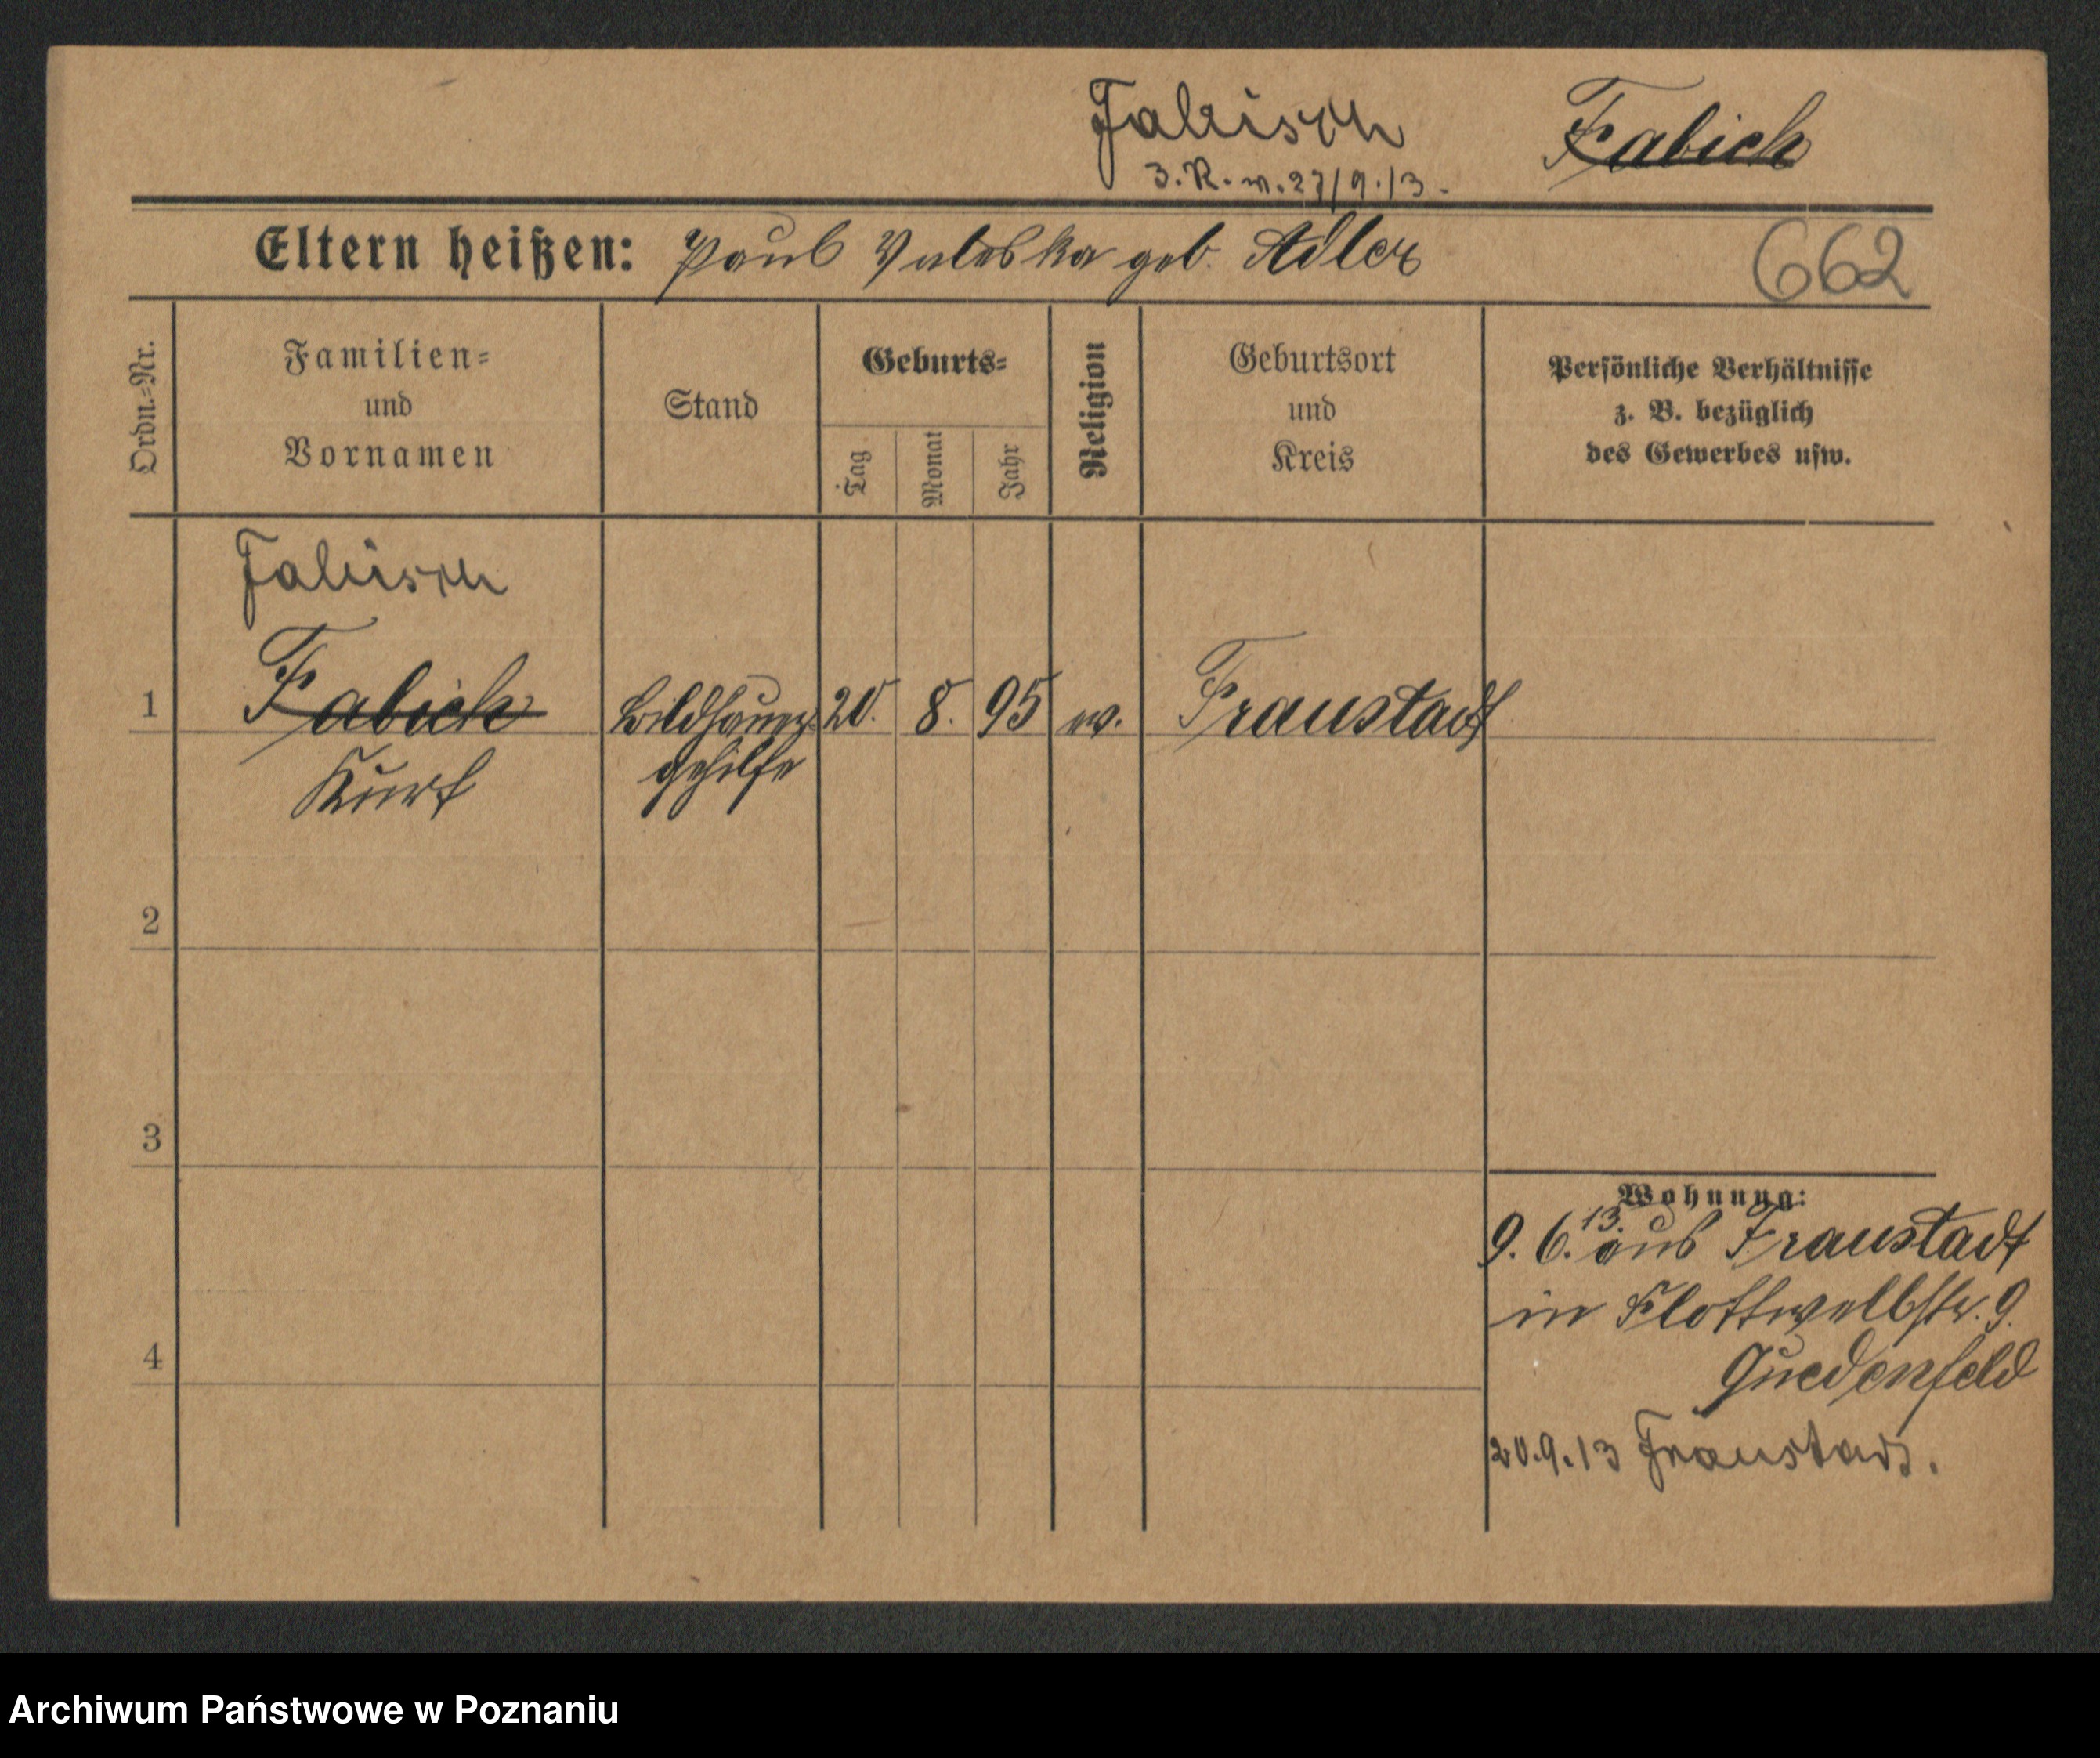 Fabisch Fabich
3. R. m. 27/9.13.
Eltern heißen: Paul Valeska geb. Adler
662
Ordn.=Nr.
Familien=
und
Vornamen
Stand
Geburts=
Tag
Monat
Jahr
Religion
Geburtsort
und
Kreis
Persönliche Verhältnisse
z. B. bezüglich
des Gewerbes usw.
Fabisch
1 Fabich Bildhauer 20. 8. 95 ev. Fraustadt
Kurt gehilfe
2
3
4
Wohnung:
9. 6. 13. aus Fraustadt
in Flottwellstr. 9.
Guedenfeld
20.9.13 Fraustadt.
Archiwum Państwowe w Poznaniu